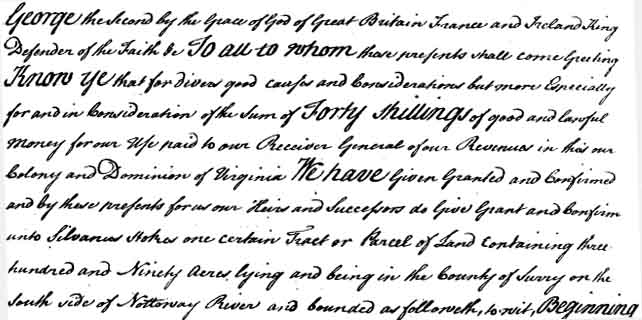 George the Second by the Grace of God of Great Britain France and Ireland King
Defender of the Faith &c To all to whom these presents shall come Greeting
Know Ye that for divers good causes and Considerations but more Especially
for and in Consideration of the Sum of Forty shillings of good and lawful
money for our Use paid to our Receiver General of our Revenues in this our
Colony and Dominion of Virginia We have Given Granted and Confirmed
and by these presents for us our Heirs and Successors do Give Grant and Confirm
unto Silvanus Stokes one certain Tract or Parcel of Land containing three
hundred and Ninety Acres lying and being in the County of Surry on the
South side of Nottoway River and bounded as followeth, to wit, Beginning